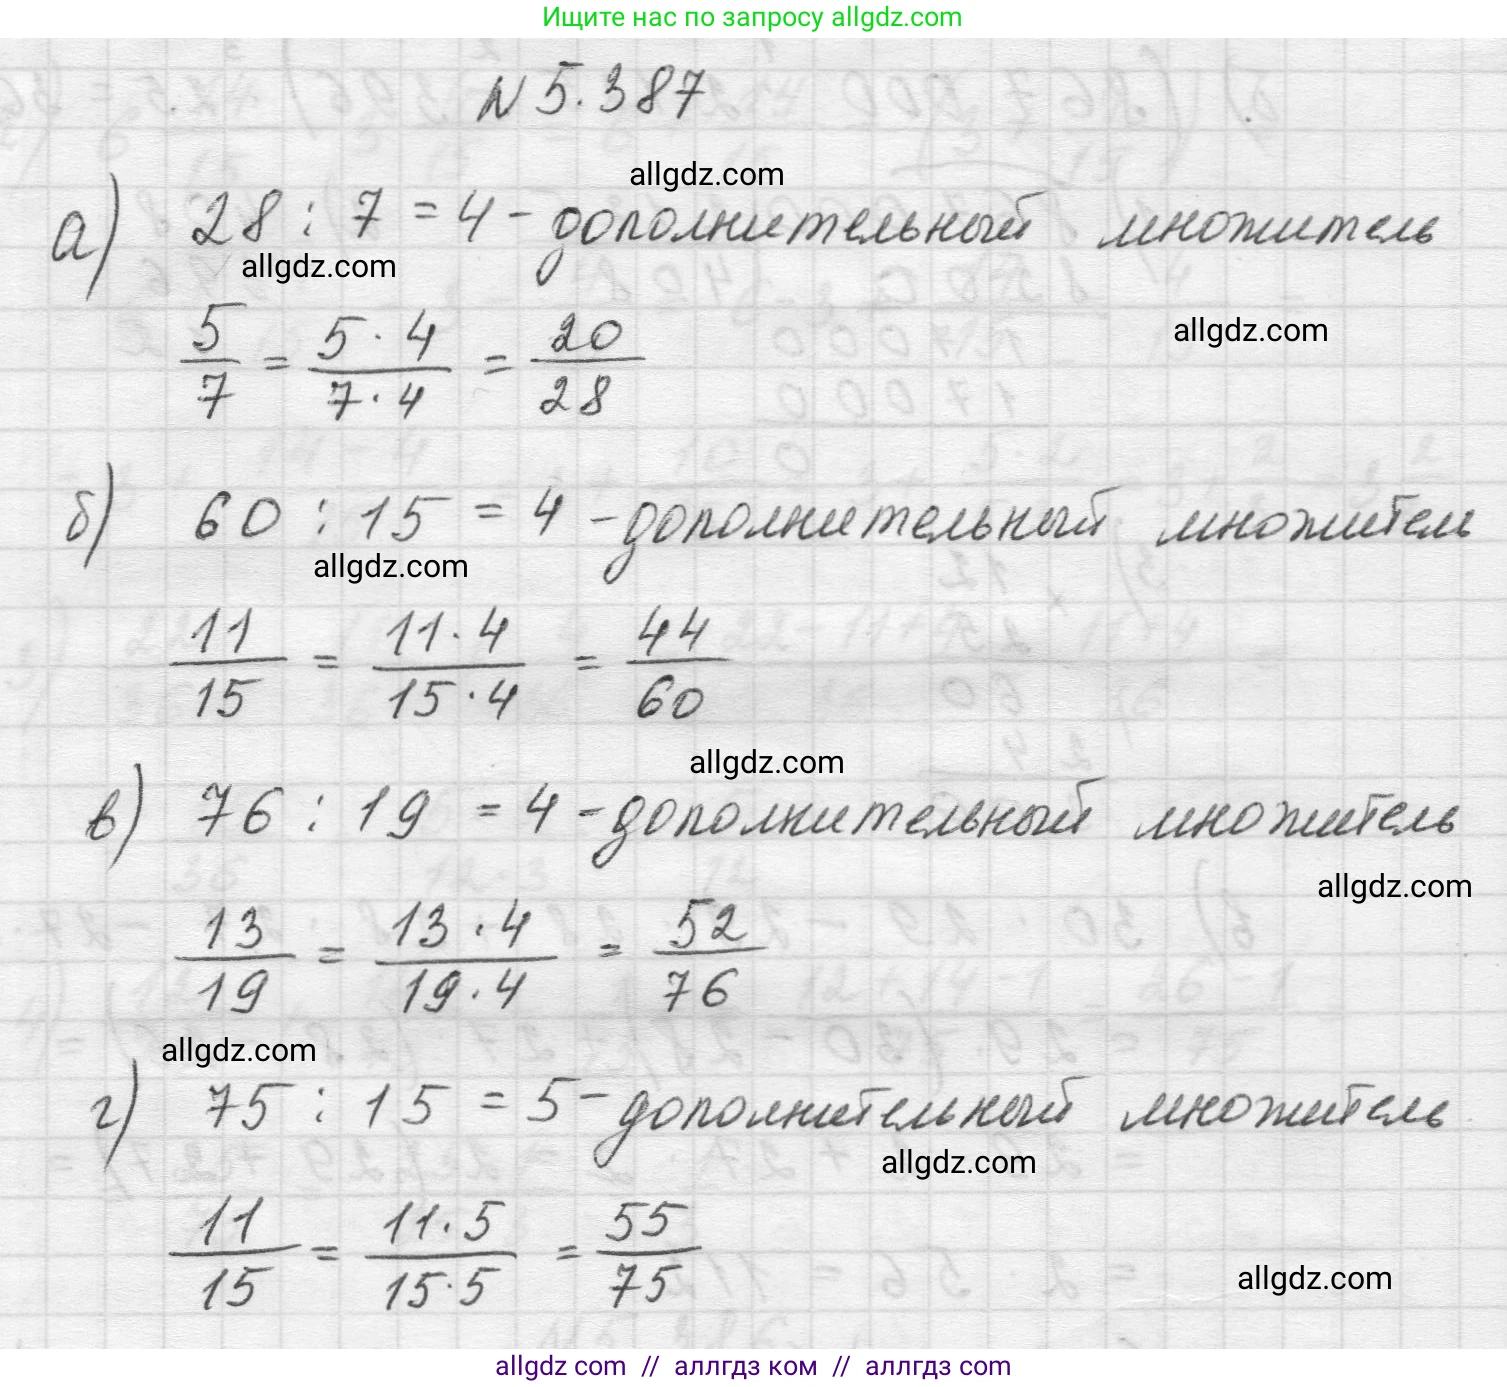 Ищите нас по запросу allgdz.com
N 5.387
allgdz.com
а) 28 : 7 = 4 - дополнительный множитель
allgdz.com
allgdz.com
5/7 = 5 · 4/7 · 4 = 20/28
б) 60 : 15 = 4 - дополнительный множитель
allgdz.com
11/15 = 11 · 4/15 · 4 = 44/60
allgdz.com
в) 76 : 19 = 4 - дополнительный множитель
allgdz.com
13/19 = 13 · 4/19 · 4 = 52/76
allgdz.com
г) 75 : 15 = 5 - дополнительный множитель
allgdz.com
11/15 = 11 · 5/15 · 5 = 55/75
allgdz.com
allgdz.com // аллгдз ком // аллгдз com